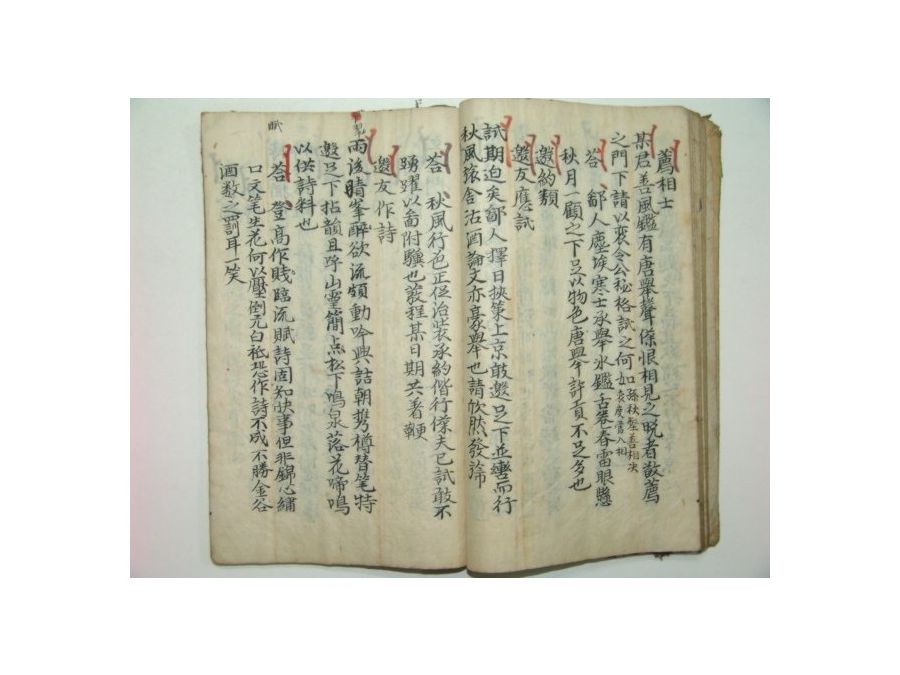 薦相士
某君善風鑑有唐擧聲僕恨相見之晩者敬薦
之門下請以裴令公秘格試之何如
答 鄙人塵埃寒士承擧氷鑑舌卷春雷眼懸
秋月一顧之下足以物色唐擧許負不足多也
邀約類
邀友應試
試期迫矣鄙人擇日挾策上京敢邀足下並轡而行
秋風旅舍沽酒論文亦豪擧也請欣然發斾
答 秋風行色正促治裝承約偕行僕夫已試敢不
踴躍以面附驥也發程某日期共着鞭
邀友作詩
雨後晴峯醉欲流頻動吟興詰朝携樽替笔特
邀足下拈韻且呼山靈簡点松下鳴泉落花啼鳴
以供詩料也
答 登高作賤臨流賦詩固知快事但非錦心繡
口又笔生花何以壓倒元白秪恐作詩不成不勝金谷
酒数之罰耳一笑
賦